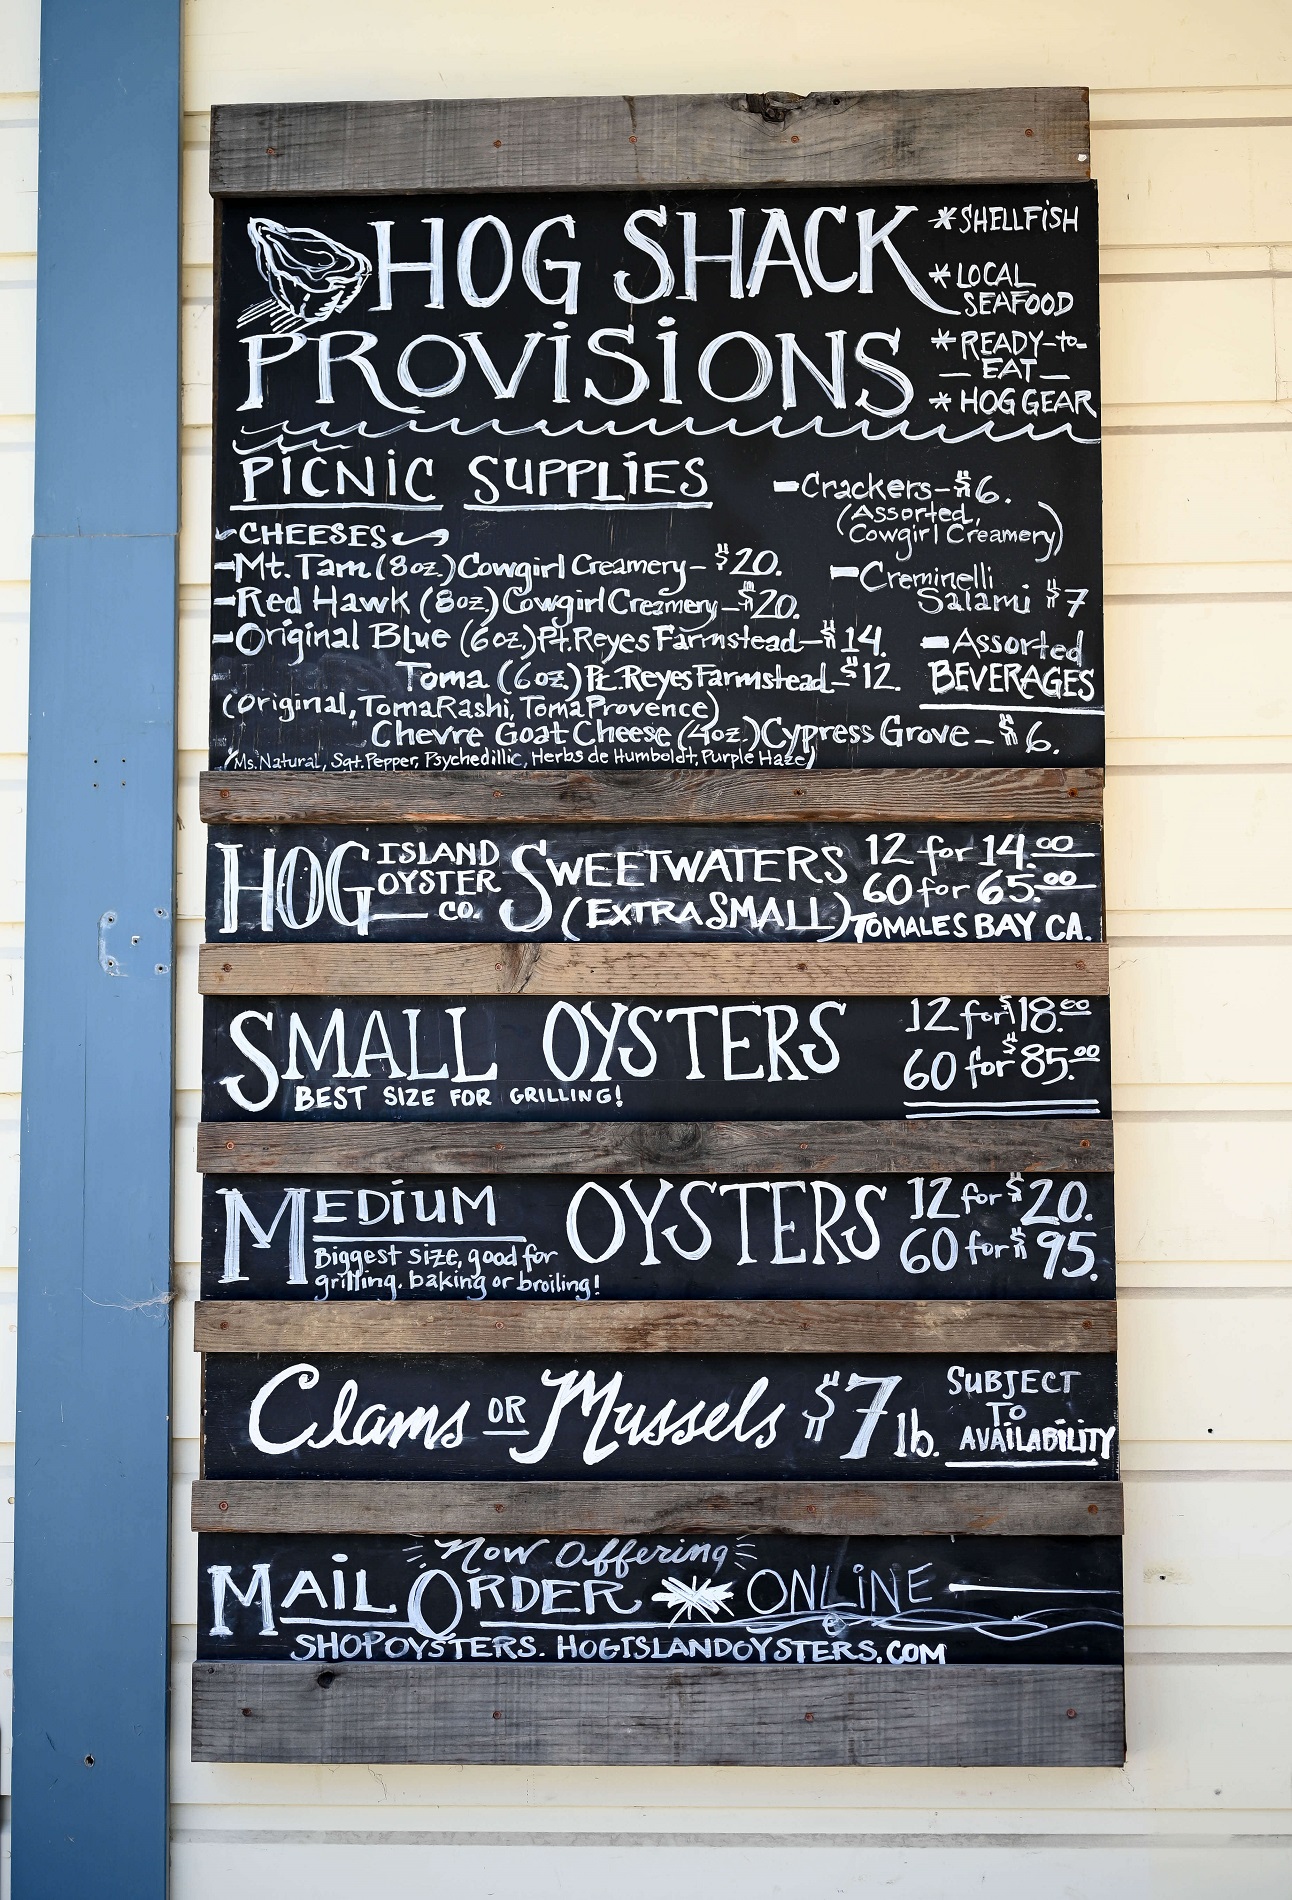 HOG SHACK
PROVISIONS
* SHELLFISH
* LOCAL
SEAFOOD
* READY-to-
— EAT —
* HOG GEAR
PICNIC SUPPLIES
CHEESES
- Mt. Tam (8oz.) Cowgirl Creamery - $20.
- Red Hawk (8oz.) Cowgirl Creamery - $20.
- Original Blue (6oz.) Pt. Reyes Farmstead - $14.
Toma (6oz.) Pt. Reyes Farmstead - $12.
(Original, TomaRashi, Toma Provence)
Chevre Goat Cheese (4oz.) Cypress Grove - $6.
(Ms. Natural, Sgt. Pepper, Psychedillic, Herbs de Humboldt, Purple Haze)
- Crackers - $6.
(Assorted,
Cowgirl Creamery)
- Creminelli
Salami $7
- Assorted
BEVERAGES
HOG ISLAND
OYSTER
CO.
SWEETWATERS
(EXTRA SMALL)
12 for 14.00
60 for 65.00
TOMALES BAY CA.
SMALL OYSTERS
BEST SIZE FOR GRILLING!
12 for $18.00
60 for $85.00
MEDIUM OYSTERS
Biggest size, good for
grilling. baking or broiling!
12 for $20.
60 for $95.
Clams OR Mussels $7 lb.
SUBJECT
TO
AVAILABILITY
Now Offering
MAIL ORDER ONLINE
SHOPOYSTERS. HOGISLANDOYSTERS.COM